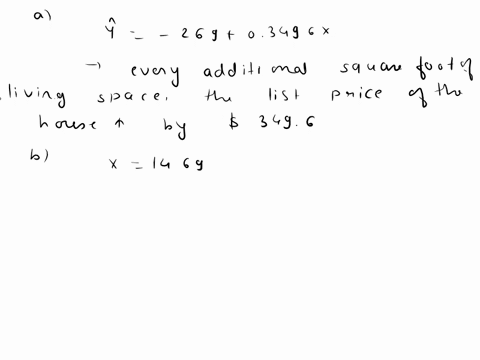 a)
Ŷ = - 269 + 0.3496 x
→ every additional square foot of
living space, the list price of the
house ↑ by $ 349.6
b)
x = 1469